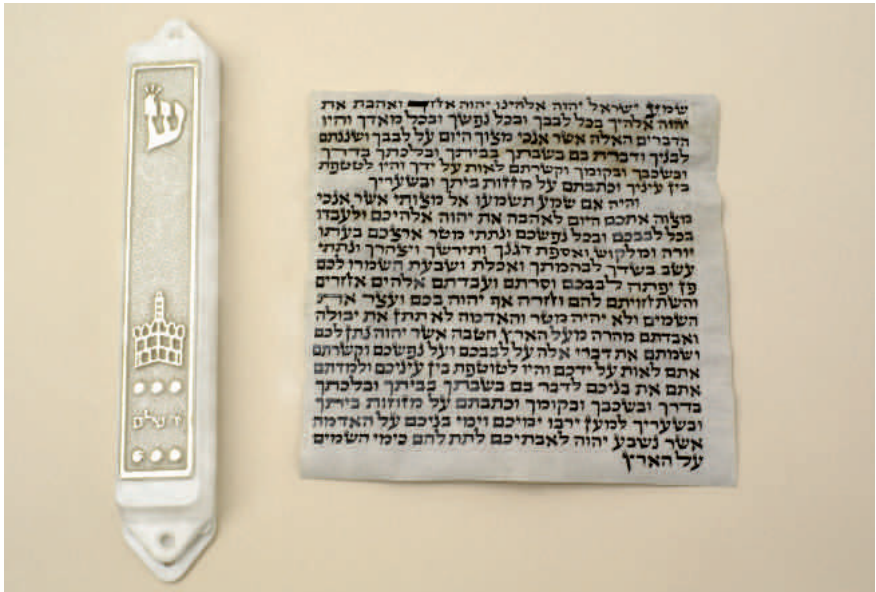 ש
ירושלם
שמע ישראל יהוה אלהינו יהוה אחד ואהבת את
יהוה אלהיך בכל לבבך ובכל נפשך ובכל מאדך והיו
הדברים האלה אשר אנכי מצוך היום על לבבך ושננתם
לבניך ודברת בם בשבתך בביתך ובלכתך בדרך
ובשכבך ובקומך וקשרתם לאות על ידך והיו לטטפת
בין עיניך וכתבתם על מזזות ביתך ובשעריך
והיה אם שמע תשמעו אל מצותי אשר אנכי
מצוה אתכם היום לאהבה את יהוה אלהיכם ולעבדו
בכל לבבכם ובכל נפשכם ונתתי מטר ארצכם בעתו
יורה ומלקוש ואספת דגנך ותירשך ויצהרך ונתתי
עשב בשדך לבהמתך ואכלת ושבעת השמרו לכם
פן יפתה לבבכם וסרתם ועבדתם אלהים אחרים
והשתחויתם להם וחרה אף יהוה בכם ועצר את
השמים ולא יהיה מטר והאדמה לא תתן את יבולה
ואבדתם מהרה מעל הארץ הטבה אשר יהוה נתן לכם
ושמתם את דברי אלה על לבבכם ועל נפשכם וקשרתם
אתם לאות על ידכם והיו לטוטפת בין עיניכם ולמדתם
אתם את בניכם לדבר בם בשבתך בביתך ובלכתך
בדרך ובשכבך ובקומך וכתבתם על מזוזות ביתך
ובשעריך למען ירבו ימיכם וימי בניכם על האדמה
אשר נשבע יהוה לאבתיכם לתת להם כימי השמים
על הארץ